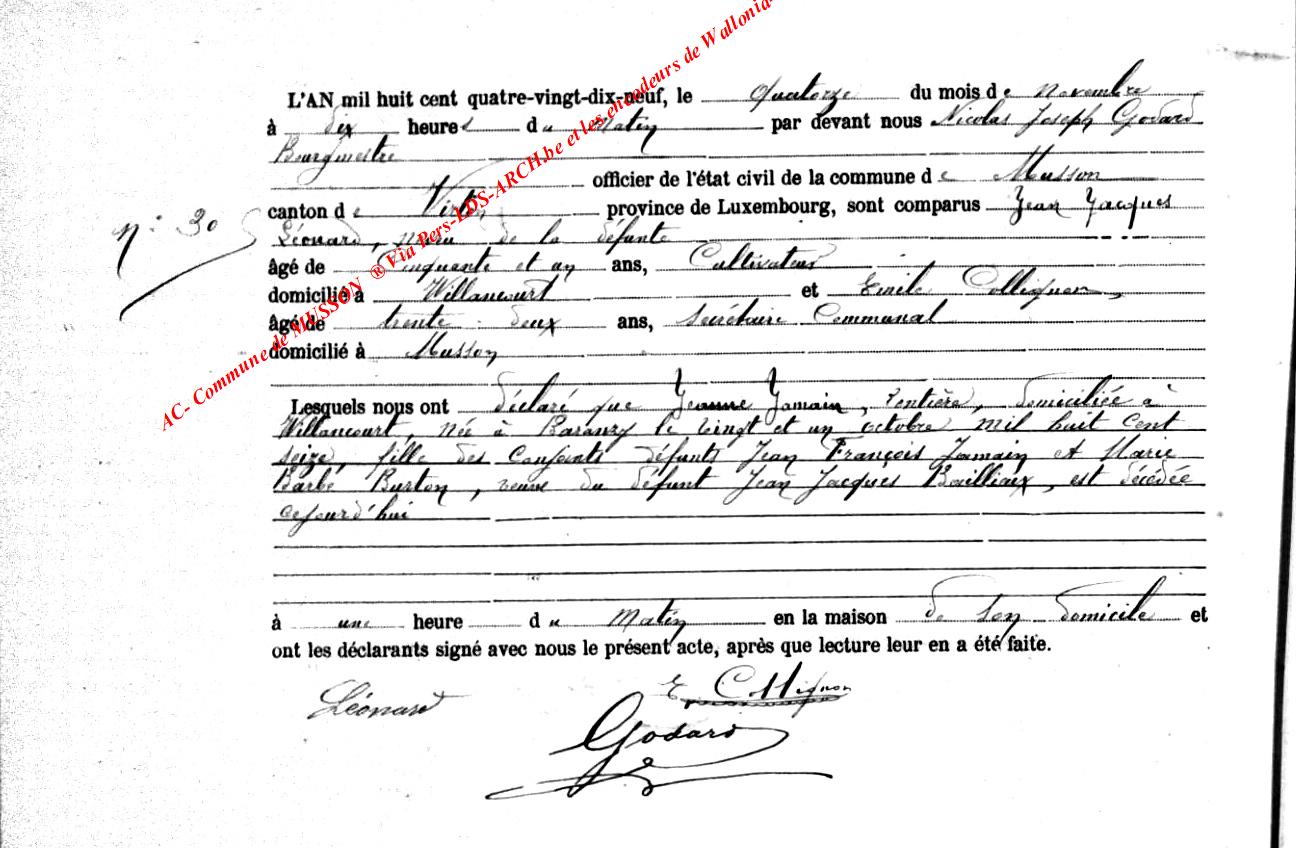 L'AN mil huit cent quatre-vingt-dix-neuf, le Quatorze du mois de novembre
à dix heures du Matin par devant nous Nicolas Joseph Godard
Bourgmestre
officier de l'état civil de la commune de Musson
canton de Virton province de Luxembourg, sont comparus Jean Jacques
n° 30
Léonard, neveu de la défunte
âgé de Cinquante et un ans, Cultivateur
domicilié à Willancourt et Emile Collignon,
âgé de trente-deux ans, Secrétaire Communal
domicilié à Musson
Lesquels nous ont déclaré que Jeanne Jamain, rentière, domiciliée à
Willancourt, née à Baranzy le vingt et un octobre mil huit cent
seize, fille des conjoints défunts Jean François Jamain et Marie
Barbe Burton, veuve du défunt Jean Jacques Bailliaux, est décédée
cejourd'hui
à une heure du Matin en la maison de son domicile et
ont les déclarants signé avec nous le présent acte, après que lecture leur en a été faite.
Léonard
E Collignon
Godard
AC- Commune de MUSSON ® Via Pers-LDS-ARCH.be et les encodeurs de Wallonia-